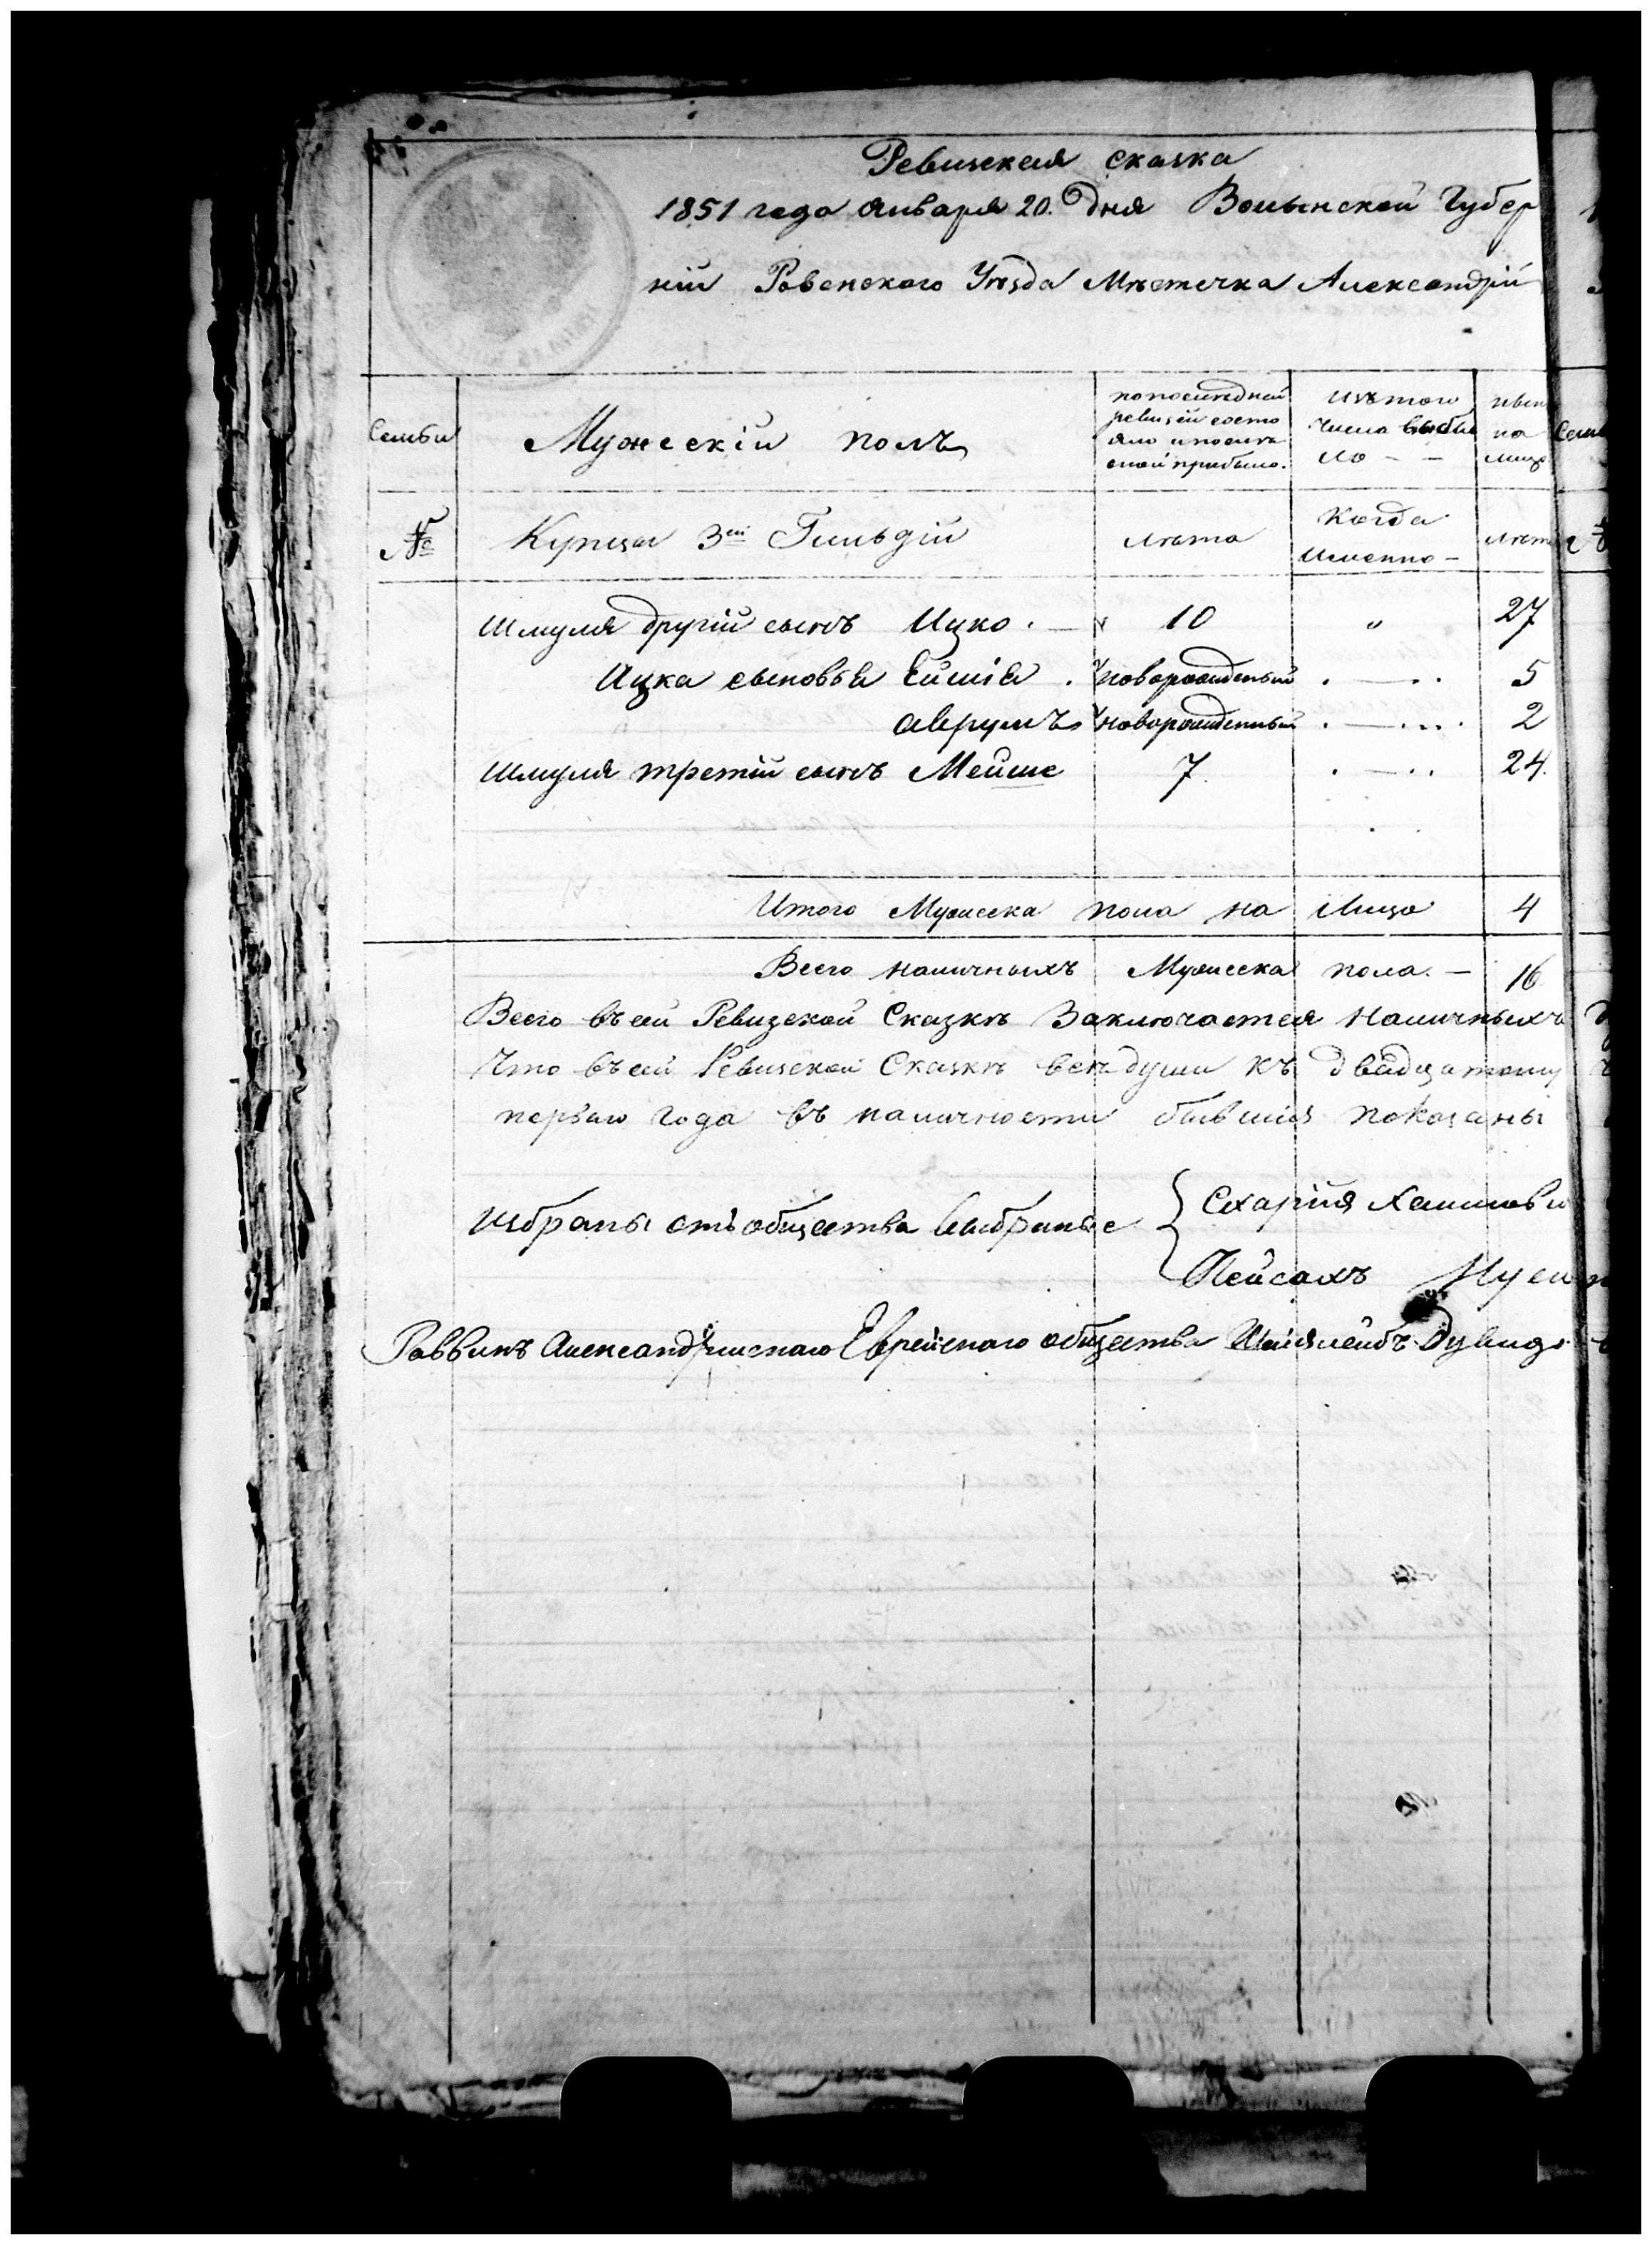 Ревизская сказка
1851 года Января 20. дня Волынской Губер
ніи Ровенского Уѣзда Мѣстечка Александріи
Семьи
Мужескій полъ
по последней
ревизіи состо
яло и после
оной прибыло.
изъ того
числа выбы
ло - -
ныне
на
лицо
№
Купцы 3ей Гильдіи
лѣта
Когда
Именно -
лѣта
Шмуля другій сынъ Ицко. 10 " 27
Ицка сыновья Еймія. новорожденый 5
Аврумъ новорожденный 2
Шмуля третій сынъ Мейше 7. 24.
Итого Мужеска пола на лицо 4
Всего наличныхъ Мужеска пола. - 16
Всего въ сей Ревизской Сказкѣ Заключается Наличныхъ
Что въ сей Ревизской Сказкѣ всѣ души къ двадцатому
первого года въ наличности бывшія показаны
избраны отъ общества выбраные
Сахарія Хаимови
Пейсахъ
Раввинъ Александрійскаго Еврейскаго общества